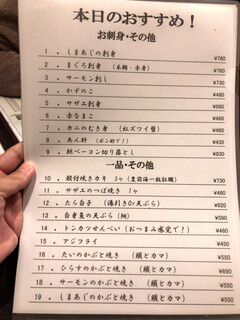 本日のおすすめ！
お刺身・その他
1 . しまあじの刺身 ¥760
2 . まぐろ刺身 （本鮪・赤身） ¥780
3 . サーモン刺し ¥730
4 . かずのこ
5 . サザエ刺身
6 . 赤なまこ
7 . カニのむき身 （紅ズワイ蟹）
8 . あん肝 （ポン酢で！）
9 . 鯨ベーコン切り落とし ¥830
一品・その他
10 . 殻付焼きカキ 1ヶ （豊前海一粒牡蠣） ¥730
11 . サザエのつぼ焼き 1ヶ ¥480
12 . たら白子 （湯引きor天ぷら） ¥820
13 . 白身魚の天ぷら
14 . トンカツせんべい（おつまみ感覚で！）
15 . アジフライ
16 . たいのかぶと焼き （頭とカマ） ¥550
17 . ひらすのかぶと焼き （頭とカマ） ¥690
18 . サーモンのかぶと焼き （頭とカマ） ¥550
19 . しまあじのかぶと焼き （頭とカマ） ¥550